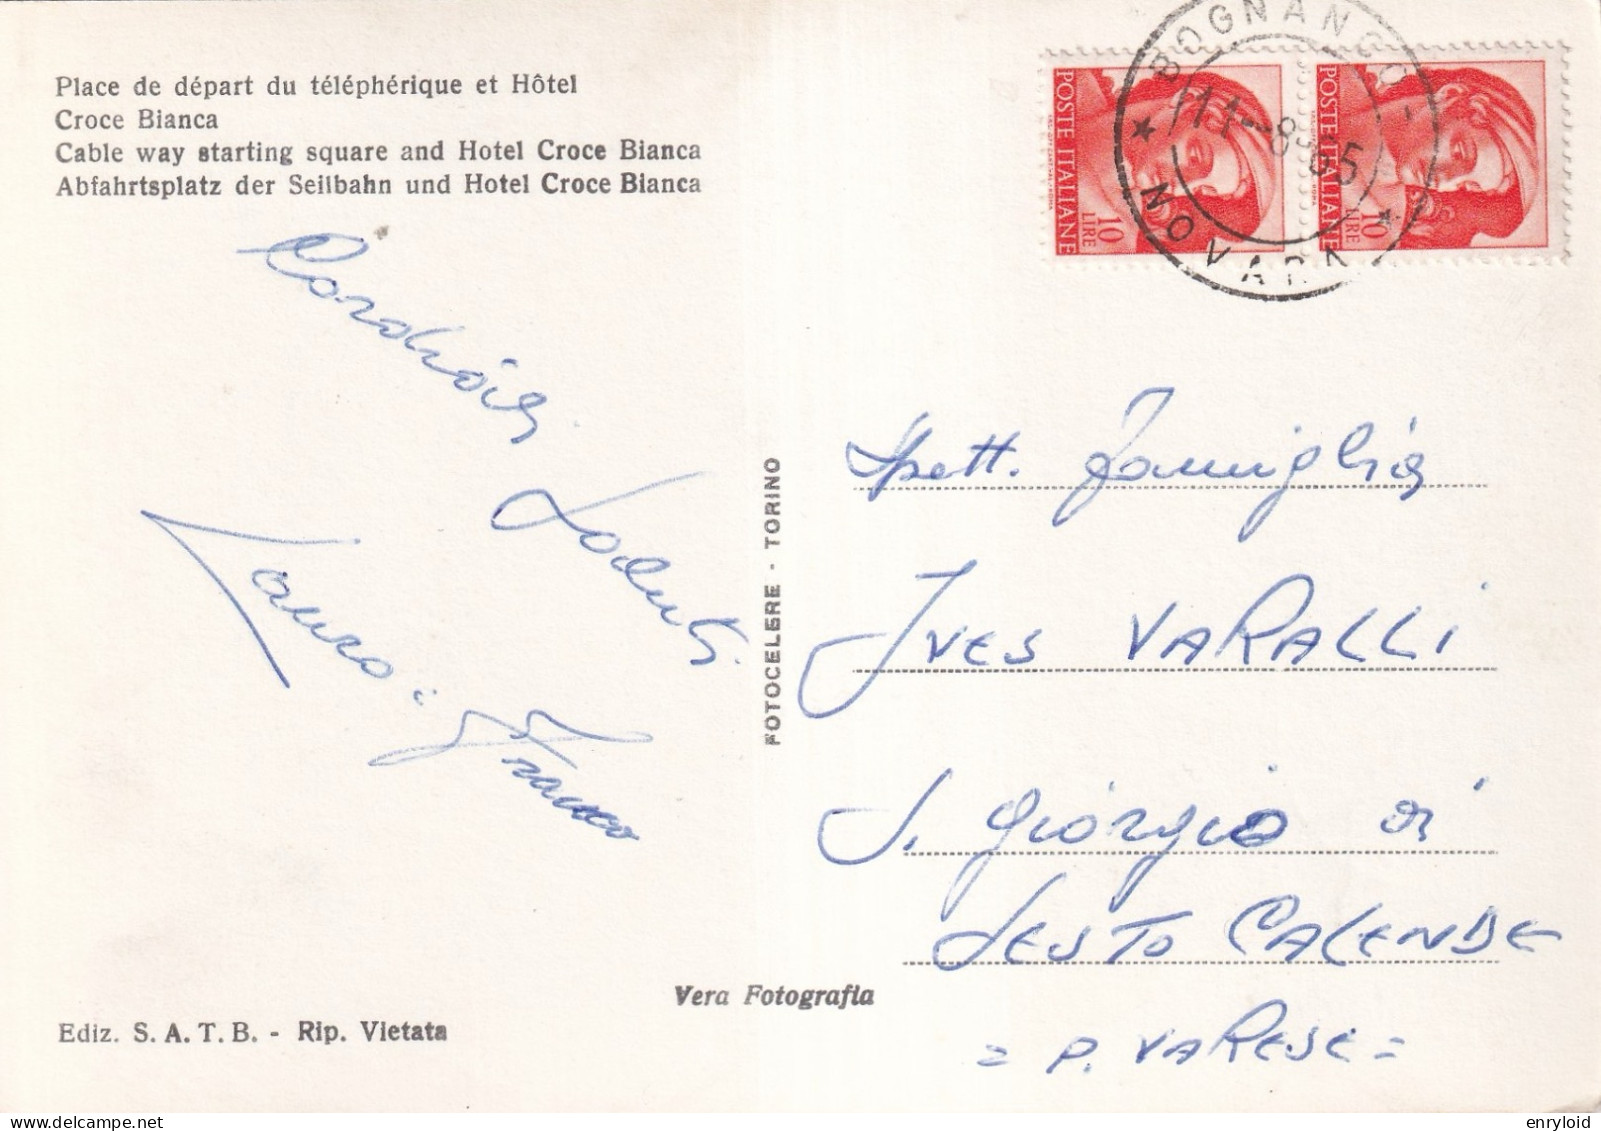 Place de départ du téléphérique et Hôtel
Croce Bianca
Cable way starting square and Hotel Croce Bianca
Abfahrtsplatz der Seilbahn und Hotel Croce Bianca
BOGNANCO
11-8-65
NOVARA
POSTE ITALIANE
10 LIRE
POSTE ITALIANE
10 LIRE
Cordiali
Saluti
Lauro e
Franco
FOTOCELERE - TORINO
Spett. Famiglia
IVES VARALLI
S. Giorgio di
SESTO CALENDE
= P. VARESE =
Vera Fotografia
Ediz. S. A. T. B. - Rip. Vietata
enryloid
delcampe.net